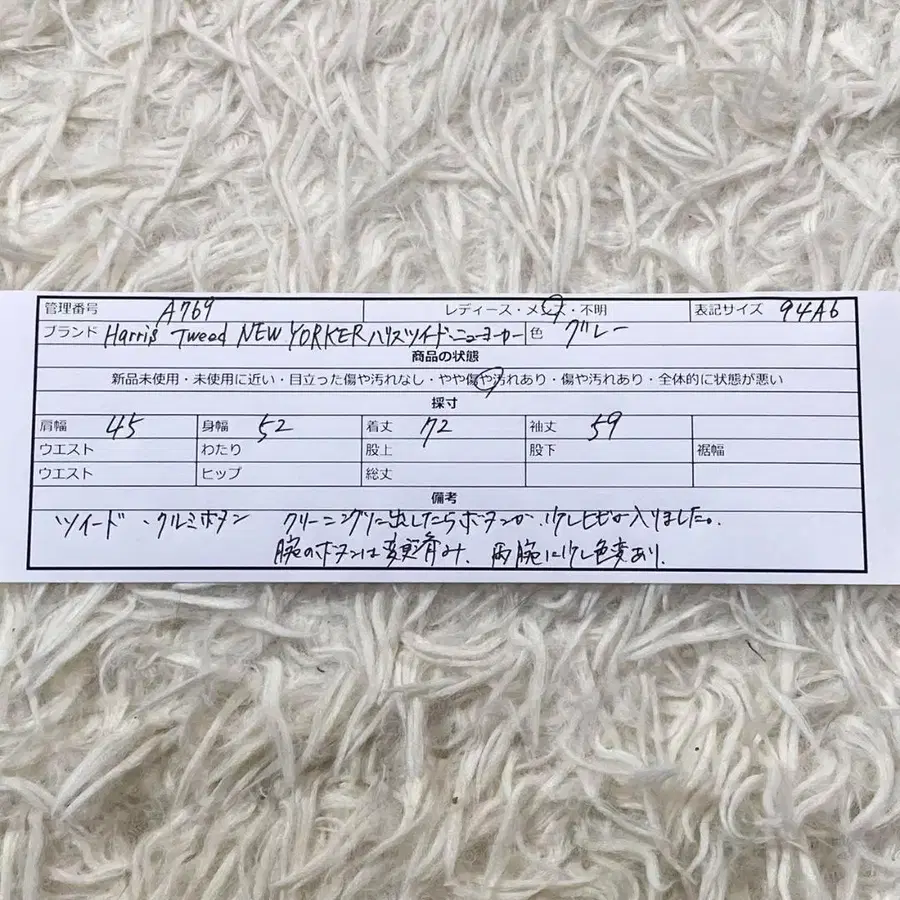 管理番号 A769 レディース・メンズ・不明 表記サイズ 94A6
ブランド Harris Tweed NEW YORKER ハリスツイード・ニューヨーカー 色 グレー
商品の状態
新品未使用・未使用に近い・目立った傷や汚れなし・やや傷や汚れあり・傷や汚れあり・全体的に状態が悪い
採寸
肩幅 45 身幅 52 着丈 72 袖丈 59
ウエスト わたり 股上 股下 裾幅
ウエスト ヒップ 総丈
備考
ツイード・クルミボタン クリーニングに出したらボタンが少しヒビが入りました。
腕のボタンは変更済み、両腕に少し色変あり.